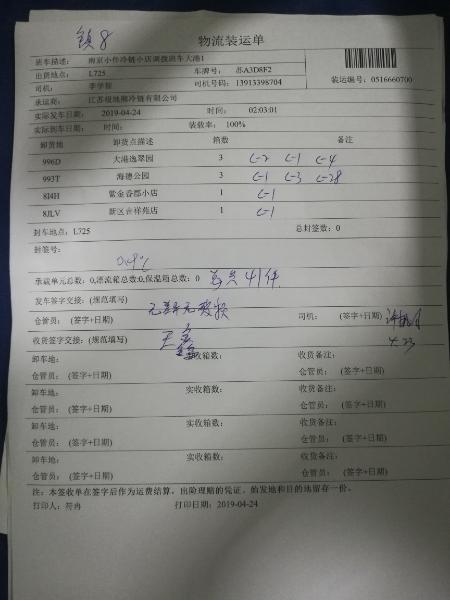 镇8
物流装运单
班车描述： 南京小件冷链小店调拨班车大港1
出货地点： L725 车牌号： 苏A3D8F2 装运编号：0516660700
司机： 李学 司机号码：13913398704
承运商： 江苏极地熊冷链有限公司
实际发车日期： 2019-04-24 时间： 02:03:01
实际到车日期： 时间： 装载率： 100%
卸货地 卸货点描述 箱数 备注
996D 大港逸翠园 3 C-2 C-1 C-4
993T 海德公园 3 C-1 C-3 C-28
8I4H 紫金香郡小店 1 C-1
8JLV 新区吉祥苑店 1 C-1
封车地点：L725 总封签数：0
封签号：
承载单元总数：0,漂流箱总数:0,保温箱总数：0 41件
发车签字交接：(规范填写)
仓管员： (签字+日期) 司机： (签字+日期)
收货签字交接：(规范填写) 王 4.23
卸车地： 实收箱数： 收货备注：
仓管员： (签字+日期) 仓管员： (签字+日期)
卸车地： 实收箱数： 收货备注：
仓管员： (签字+日期) 仓管员： (签字+日期)
卸车地： 实收箱数： 收货备注：
仓管员： (签字+日期) 仓管员： (签字+日期)
卸车地： 实收箱数： 收货备注：
仓管员： (签字+日期) 仓管员： (签字+日期)
注：本签收单在签字后作为运费结算、出险理赔的凭证，始发地和目的地留存一份。
打印人：符冉 打印日期：2019-04-24